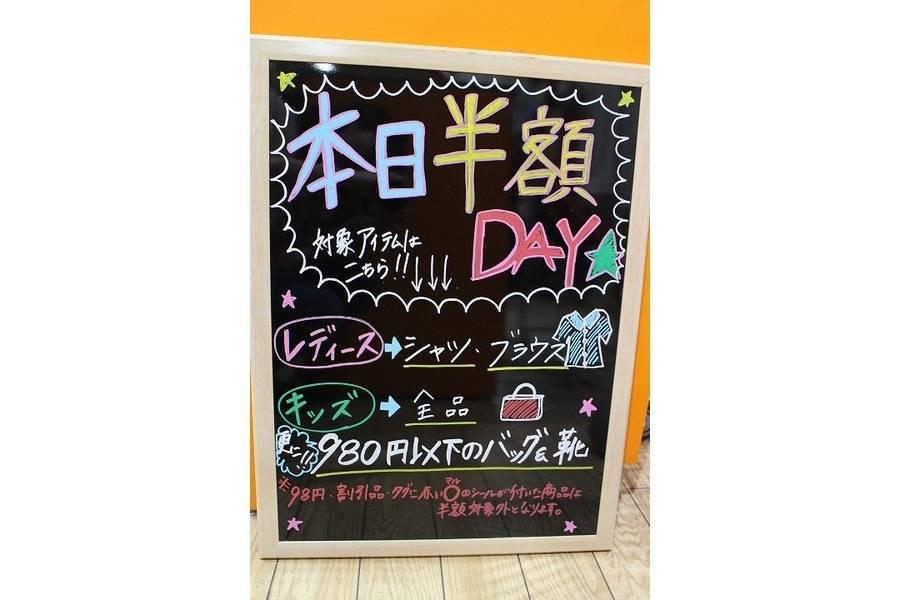 本日半額
DAY
対象アイテムは
こちら!!↓↓↓
レディース→シャツ・ブラウス
キッズ→全品
更に!!980円以下のバッグ&靴
※98円・割引品・タグに赤い〇のシールが付いた商品は
マル
半額対象外となります。